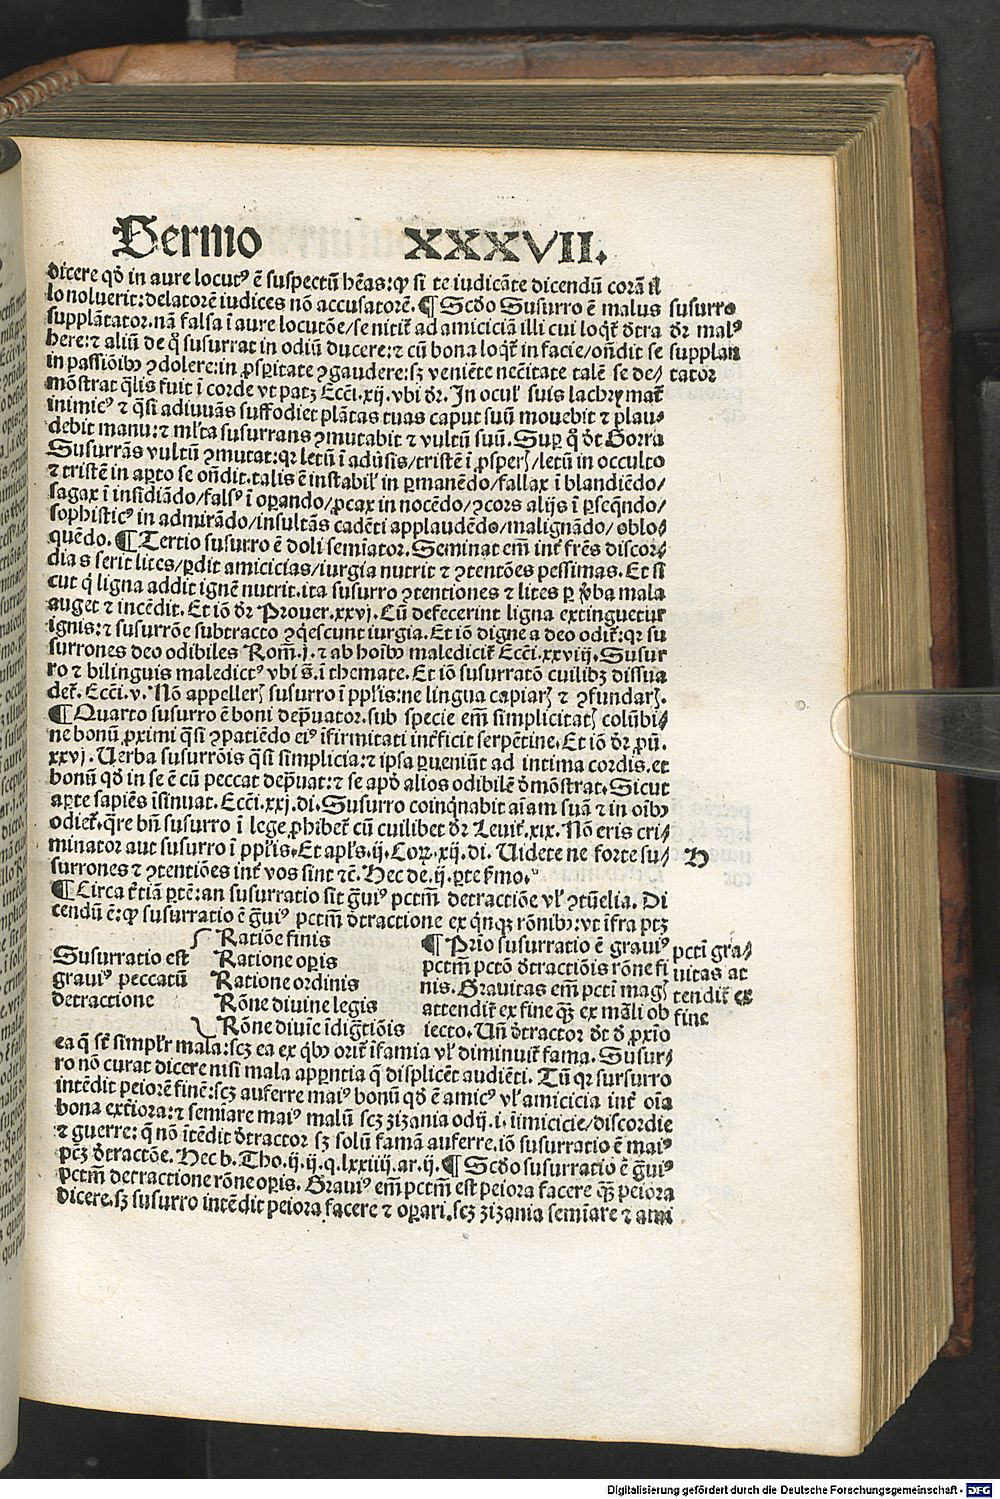 Sermo XXXVII.
dicere qđ in aure locutꝰ ē suspectū hēas: ꝙ si te iudicāte dicendū corā il
lo noluerit: delatorē iudices nō accusatorē. ¶ Scďo Susurro ē malus
supplātator. nā falsa ī aure locutōe/se nitit̄ ad amiciciā illi cui loqt̄ đtra
here: ⁊ aliū de q̊ susurrat in odiū ducere: ⁊ cū bona loqt̄ in facie/oñdit se
in passiōibꝰ ꝯdolere: in ꝓspitate ꝯgaudere: sꝫ veniēte necītate talē se de⸗
mōstrat q̄lis fuit ī corde vt patꝫ Eccī. xij. vbi đr. In ocuł suis lachrymat̄
inimicꝰ ⁊ q̄si adiuuās suffodiet plātas tuas caput suū mouebit ⁊ plau⸗
debit manu: ⁊ ml̄ta susurrans ꝯmutabit ⁊ vultū suū. Suꝑ q̊ đt Gorra
Susurrās vultū ꝯmutat: qꝛ letū ī aduīsis/tristē ī ꝓsperꝭ/letū in occulto
⁊ tristē in aꝑto se oñdit. talis ē instabił in ꝑmanēdo/fallax ī blandiēdo/
sagax ī insidiādo/falsꝰ ī oꝑando/ꝓcax in nocēdo/ꝯcors alijs ī ꝑseq̄ndo/
sophisticꝰ in admirādo/insultās cadēti applaudēdo/malignādo/oblo⸗
quēdo. ¶ Tertio susurro ē doli semīator. Seminat em̄ int̄ frēs discor⸗
dias serit lites/ꝑdit amicicias/iurgia nutrit ⁊ ꝯtentōes pessimas. Et si
cut q̇ ligna addit ignē nutrit. ita susurro ꝯtentiones ⁊ lites ꝑ v̄ba mala
auget ⁊ incēdit. Et iō đr Prouer. xxvj. Cū defecerint ligna extinguetur
ignis: ⁊ susurrōe subtracto ꝯq̇escunt iurgia. Et iō digne a deo odit̄: qꝛ su
surrones deo odibiles Rom̄. j. ⁊ ab hoībꝰ maledicit̄ Eccī. xxviij. Susur
ro ⁊ bilinguis maledictꝰ vbi s̄. ī themate. Et iō susurratō cuilibꝫ dissua
det̄. Eccī. v. Nō appellerꝭ susurro ī ppl̄is: ne lingua capiarꝭ ⁊ ꝯfundarꝭ.
¶ Quarto susurro ē boni dep̄uator. sub specie em̄ simplicitatꝭ colūbi⸗
ne bonū ꝓximi q̄si ꝯpatiēdo eiꝰ īfirmitati int̄ficit serpētine. Et iō đr ꝓū.
xxvj. Uerba susurrōis q̄si simplicia: ⁊ ipsa ꝑueniūt ad intima cordis. et
bonū qđ in se ē cū peccat dep̄uat: ⁊ se apđ alios odibilē đmōstrat. Sicut
aꝑte sapiēs īsinuat. Eccī. xxj. di. Susurro coinq̇nabit aīam suā ⁊ in oībꝰ
odiet̄. q̄re bn̄ susurro ī lege ꝓhibet̄ cū cuilibet đr Leuit̄. xix. Nō eris cri⸗
minator aut susurro ī ppl̄is. Et apl̄s. ij. Coꝝ. xij. di. Uidete ne forte su⸗
surrones ⁊ ꝯtentiōes int̄ vos sint ⁊c̄. Hec de. ij. ꝑte s̄mo.
¶ Circa t̄tiā ꝑtē: an susurratio sit ḡuiꝰ pctm̄ detractiōe vł ꝯtūelia. Di
cendū ē: ꝙ susurratio ē ḡuiꝰ pctm̄ đtractione ex q̇nqꝫ rōnibꝰ: vt īfra ptꝫ
Susurratio est
grauiꝰ peccatū
detractione
Ratiōe finis
Ratione oꝑis
Ratione ordinis
Rōne diuine legis
Rōne diuīe īdigtiōis
¶ Prīo susurratio ē grauiꝰ
pctm̄ pctō đtractiōis rōne fi
nis. Grauitas em̄ pcti magꝭ
attendit̄ ex fine q̄ꝫ ex māli ob
iecto. Un̄ đtractor đt đ ꝓxīo
ea q̄ st̄ simplr̄ mala: scꝫ ea ex q̇bꝰ orit̄ īfamia vł diminuit̄ fama. Susur⸗
ro nō curat dicere nisi mala apꝑntia q̄ displicēt audiēti. Tū qꝛ sursurro
intēdit peiorē finē: scꝫ auferre maiꝰ bonū qđ ē amicꝰ vł amicicia int̄ oīa
bona ext̄iora: ⁊ semīare maiꝰ malū scꝫ zizania odij. i. īimicicie/discordie
⁊ guerre: q̄ nō ītēdit đtractor sꝫ solū famā auferre. iō susurratio ē maiꝰ
pctꝫ đtractōe. Hec b. Tho. ij. ij. q. lxxiiij. ar. ij. ¶ Scďo susurratio ē ḡuiꝰ
pctm̄ detractione rōne oꝑis. Grauiꝰ em̄ pctm̄ est peiora facere q̄ꝫ peiora
dicere. sꝫ susurro intēdit peiora facere ⁊ oꝑari. scꝫ zizania semīare ⁊ ami
susurro
đr malꝰ
supplan
tator
H
pcti gra⸗
uitas at
tendit̄ ex
fine
Digitalisierung gefördert durch die Deutsche Forschungsgemeinschaft - DFG